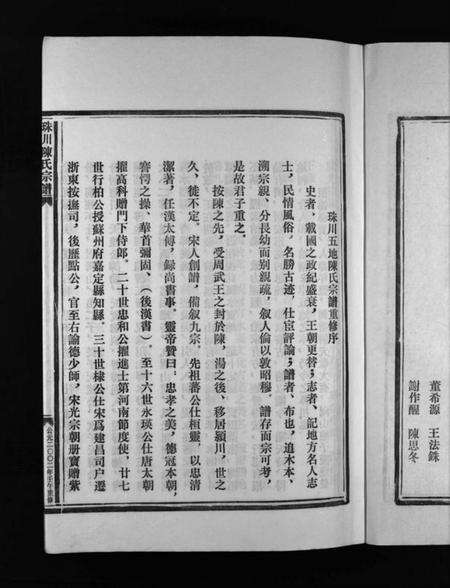 董希源 王法銖
謝作醒 陳思冬
珠川五地陳氏宗譜重修序
史者，載國之政紀盛衰，王朝更替；志者、記地方名人志
士，民情風俗，名勝古迹，仕宦評論；譜者、布也，追木本、
溯宗親、分長幼而別親疏，叙人倫以敦昭穆。譜存而宗可考，
是故君子重之。
按陳之先，受周武王之封於陳，湯之後、移居潁川，世之
久、徙不定。宋人創譜，備叙九宗。先祖蕃公仕桓靈，以忠清
潔著，任漢太傅，録尚書事。靈帝贊曰：忠孝之美，德冠本朝，
謇愕之操、華首彌固。（後漢書）。至十六世永瑛公仕唐太朝
擢高科贈門下侍郎。二十世忠和公擢進士第河南節度使，廿七
世行柏公授蘇州府嘉定縣知縣。三十世樣公仕宋爲建昌司户遷
浙東按撫司，後歷點公，官至右諭德少師，宋光宗朝册寶贈紫
珠川陳氏宗譜
公元二〇〇二年壬午重修